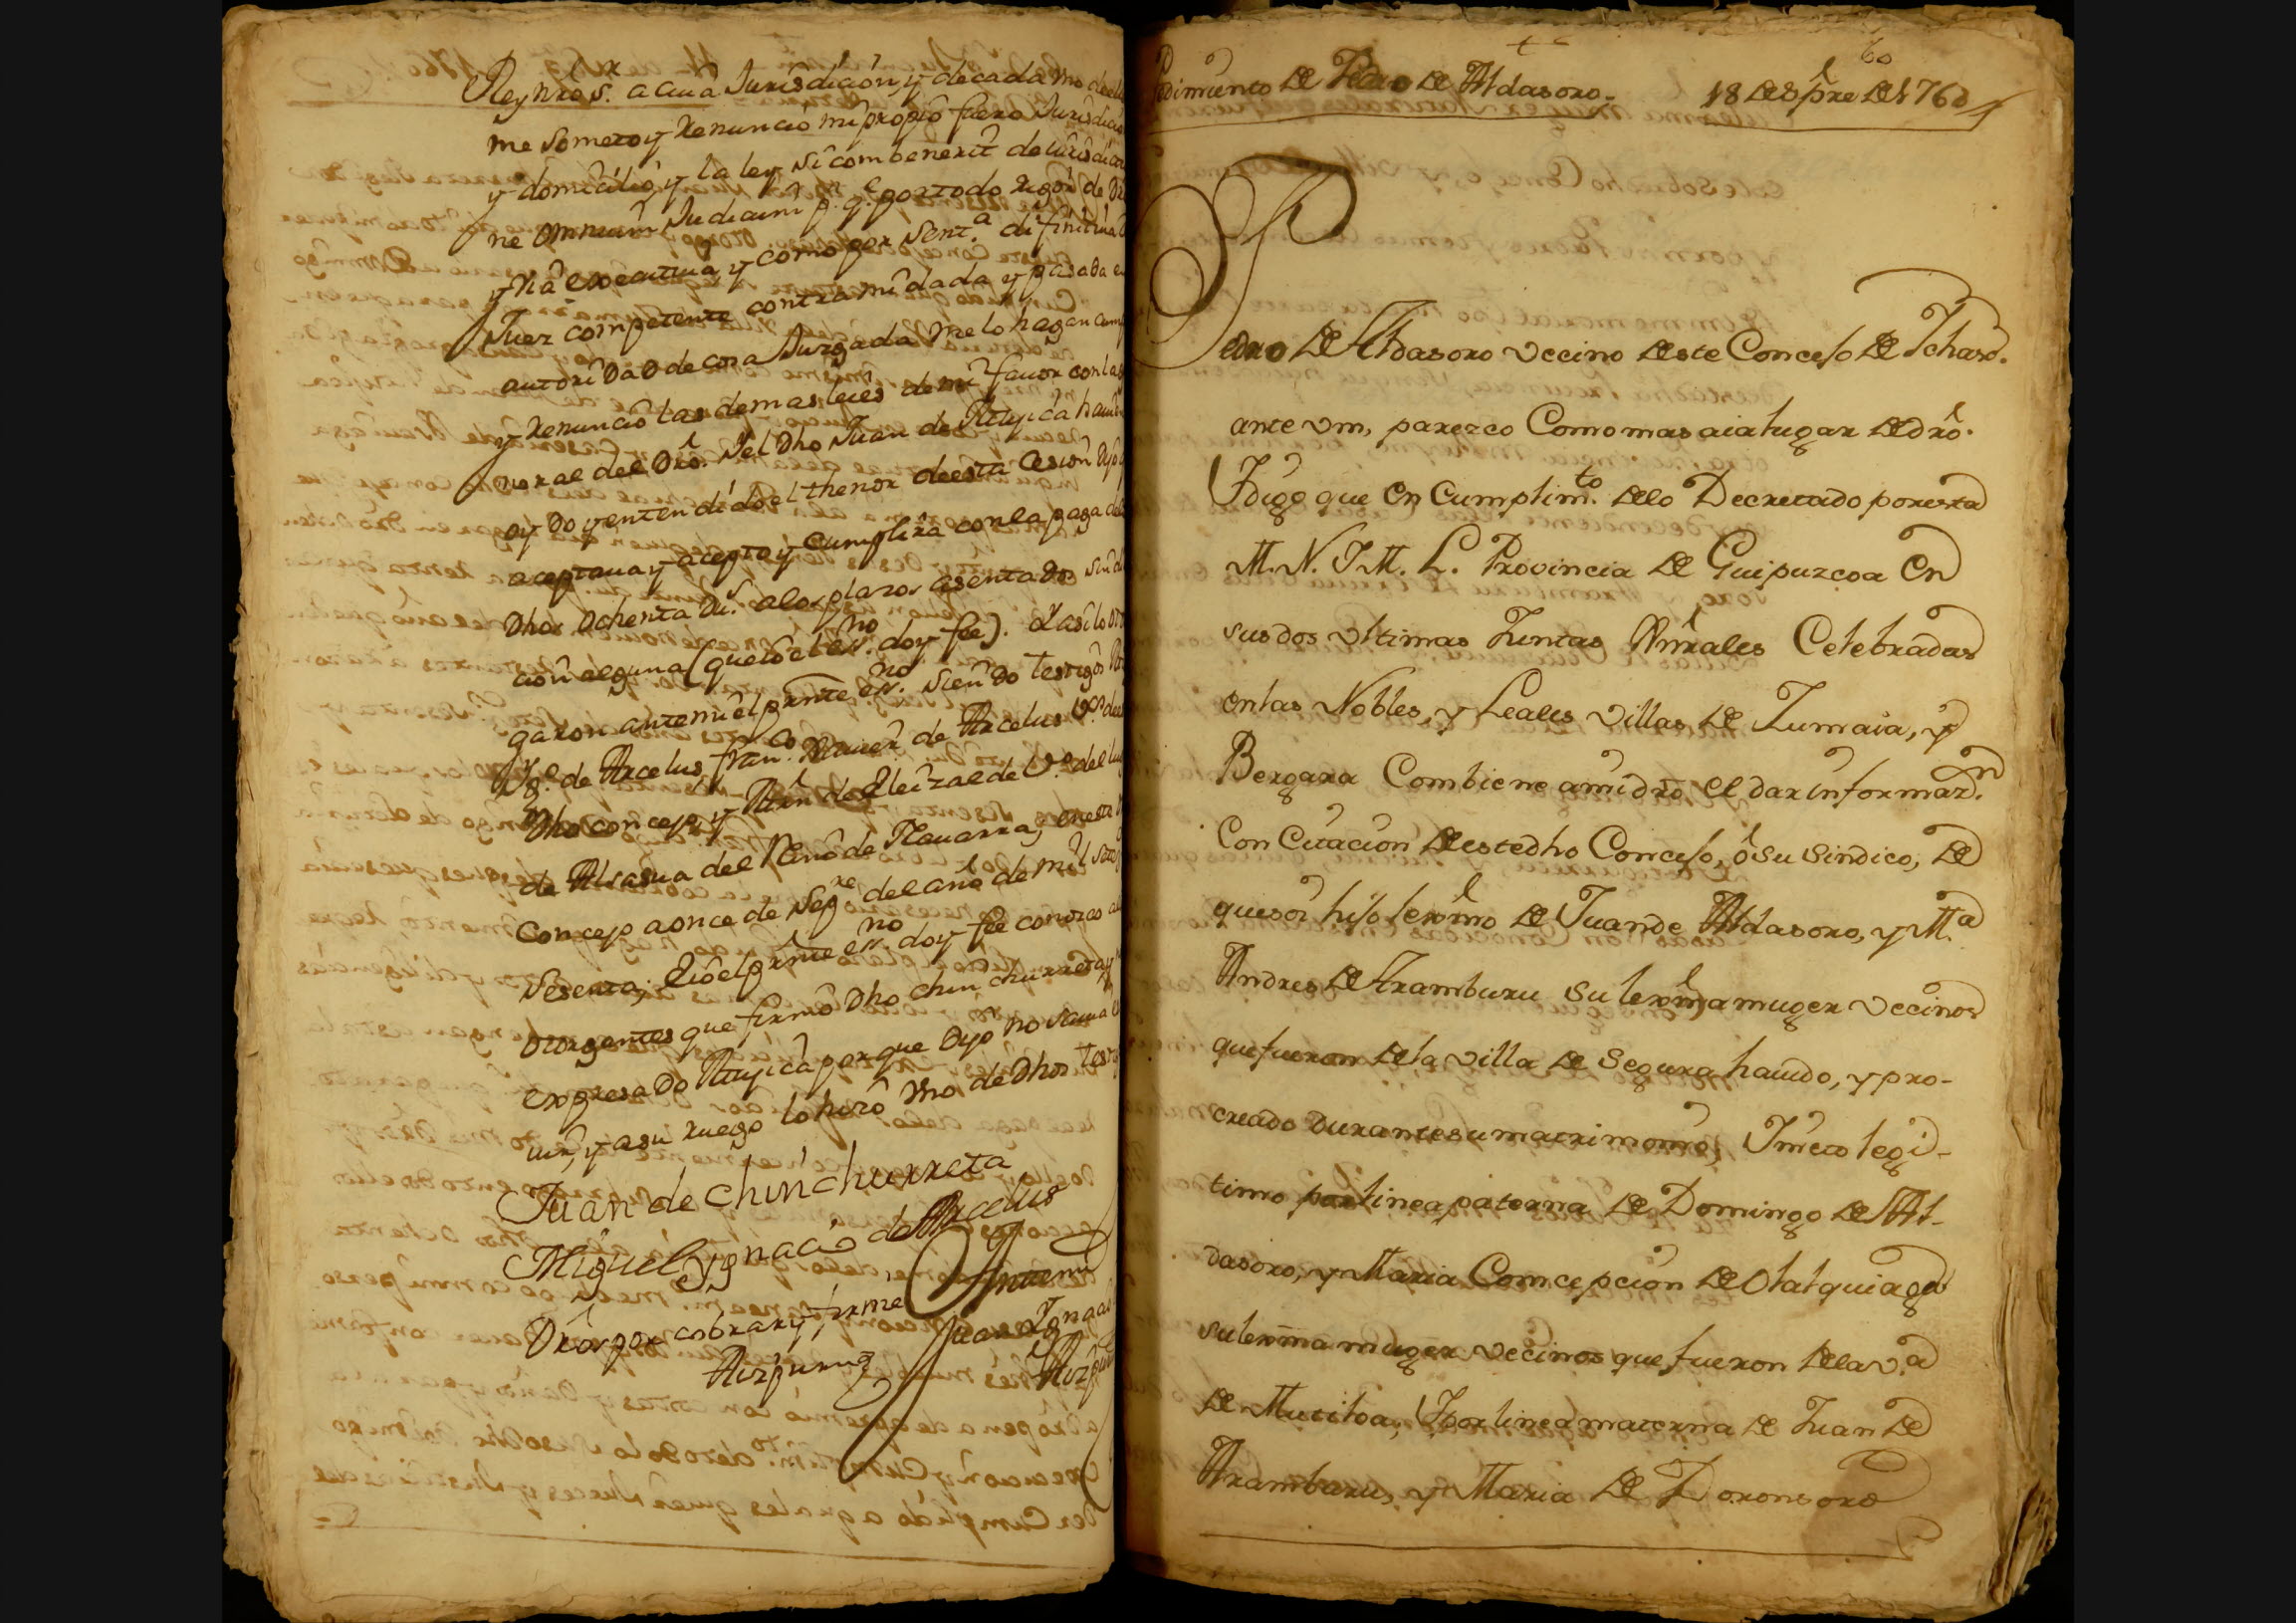 Rey nrō S.r a cuia Jurisdición, y de cada vno de ellos
me someto y Renunció mi propió fuero Jurisdició
y domicilió, y la ley si combenerit de Jurisdicio
ne omnium Judicum p.a q.e por todo rigor de Dr
y via executiua, y como por Sent.a difinitiua
Juez competente contra mi dada y pasada en
autoridad de cosa Jurgada me lo hagan cump
y Renunció las demas leies de mi fauor con la ge
neral del Drō. Yel Dho Juan de Auyica hauien
oydo y entendido el thenor de esta Cesion Dijo q
aceptaua y aceptó y cumplira con la paga de los
Dhos ochenta Du.s a los plazos asentados sin di
ción alguna (que Yo el ess.no doy fee). Y asi lo oto
garon ante mi el prnte ess.no siendo testigos
Yg.o de Arcelus, Fran.co Xauier de Arcelus v.os de
Dho concejo, y Mrn de Eleizalde v.o del lug
de Alsasua del Reino de Nauarra, en este
Concejo a once de Sep.re del año de mil sete
Sesenta; Yo el prnte ess.no doy fee conozco a
otorgentes que firmó Dho chinchurreta, y
expresado Auyica porque Dijo no sauia es
uir, y a su ruego lo hizó vno de Dhos testi
Juan de chinchurreta
Miguel Ygnació de Arcelus
Ante mi
Drōs por cobrar y firme
Juan Ygnació
Aizpurua
Aizpuru
60
Pedimiento de Pedro de Aldasoro.
18 de 8pre de 1760
Pedro de Aldasoro vecino deste Concejo de Ichaso.
ante vm, parezco Como mas aia lugar de drō.
Y digo que en Cumplim.to de lo Decretado por esta
M. N. Y M. L. Provincia de Guipuzcoa en
sus dos vltimas Juntas Gn̄rales Celebradas
en las Nobles, y Leales villas de Zumaia, y
Bergara Combiene a mi drō el dar informaz.n
Con Citacion de este dho Concejo, ó su Sindico, de
que soi hijo lexmo de Juan de Aldasoro, y M.a
Andres de Aramburu su lexma muger vecinos
que fueron de la villa de Segura hauido, y pro-
creado durante su matrimonio, Y nieto legi-
timo por linea paterna de Domingo de Al-
dasoro, y Maria Comcepción de Olalquiaga
su lexma muger vecinos que fueron de la v.a
de Mutiloa, Y por linea materna de Juan de
Aramburu, y Maria de Doronsoro